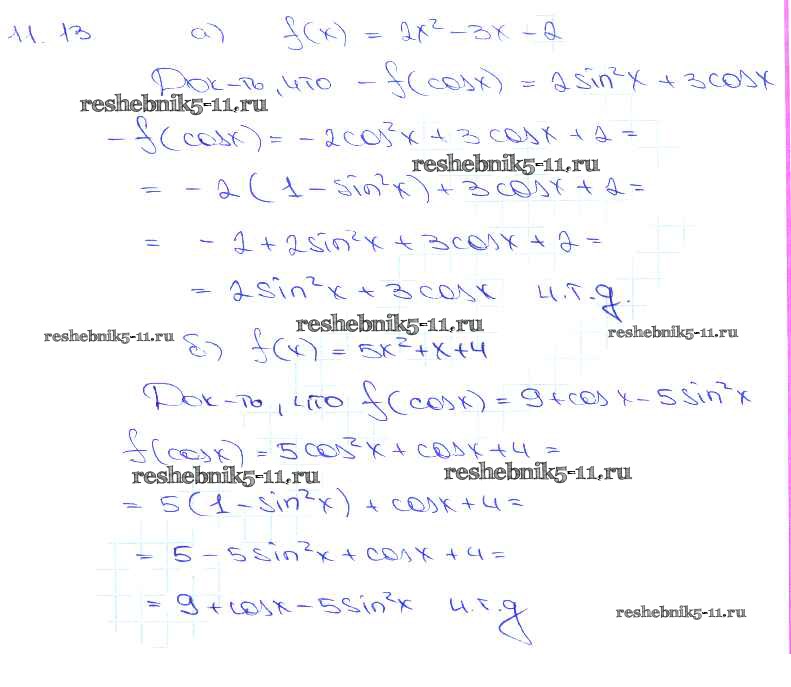 11.13 а) f(x) = 2x² - 3x - 2
Док-ть, что - f(cosx) = 2sin²x + 3cosx
reshebnik5-11.ru
- f(cosx) = - 2cos²x + 3cosx + 2 =
reshebnik5-11.ru
= - 2(1 - sin²x) + 3cosx + 2 =
= - 2 + 2sin²x + 3cosx + 2 =
= 2sin²x + 3cosx ч.т.д.
reshebnik5-11.ru
reshebnik5-11.ru
reshebnik5-11.ru
б) f(x) = 5x² + x + 4
Док-ть, что f(cosx) = 9 + cosx - 5sin²x
f(cosx) = 5cos²x + cosx + 4 =
reshebnik5-11.ru
reshebnik5-11.ru
= 5(1 - sin²x) + cosx + 4 =
= 5 - 5sin²x + cosx + 4 =
= 9 + cosx - 5sin²x ч.т.д
reshebnik5-11.ru